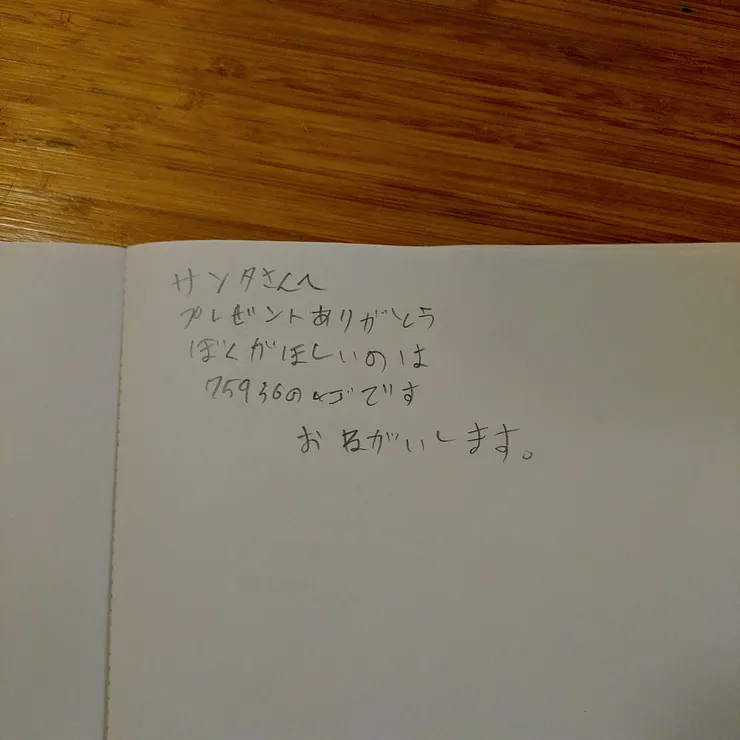 サンタさんへ
プレゼントありがとう
ぼくがほしいのは
75936のレゴです
おねがいします。